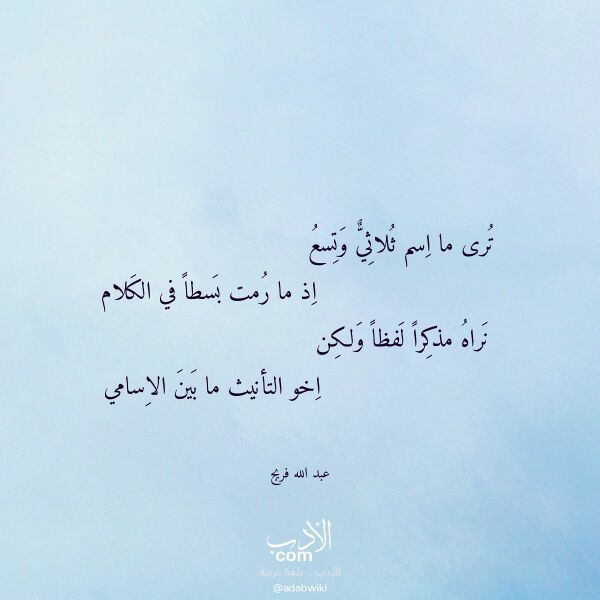 تُرى ما اِسم ثُلاثِيٌّ وَتِسعُ
اِذ ما رُمت بَسطاً في الكَلام
نَراهُ مذكِراً لَفظاً وَلكِن
اِخو التأنيث ما بَينَ الاِسامي
عبد الله فريج
الأدب
com
الأدب .. بلغة عربية
@adabwiki